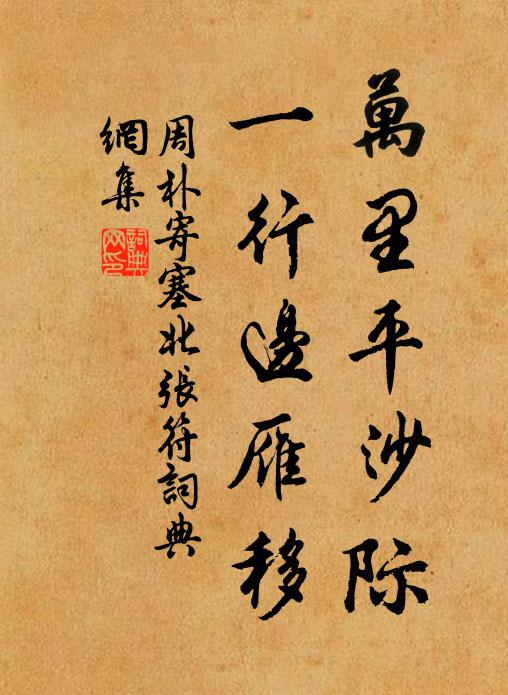 萬里平沙际
一行邊雁移
周朴寄塞北張符詞典
網集
詞典网印